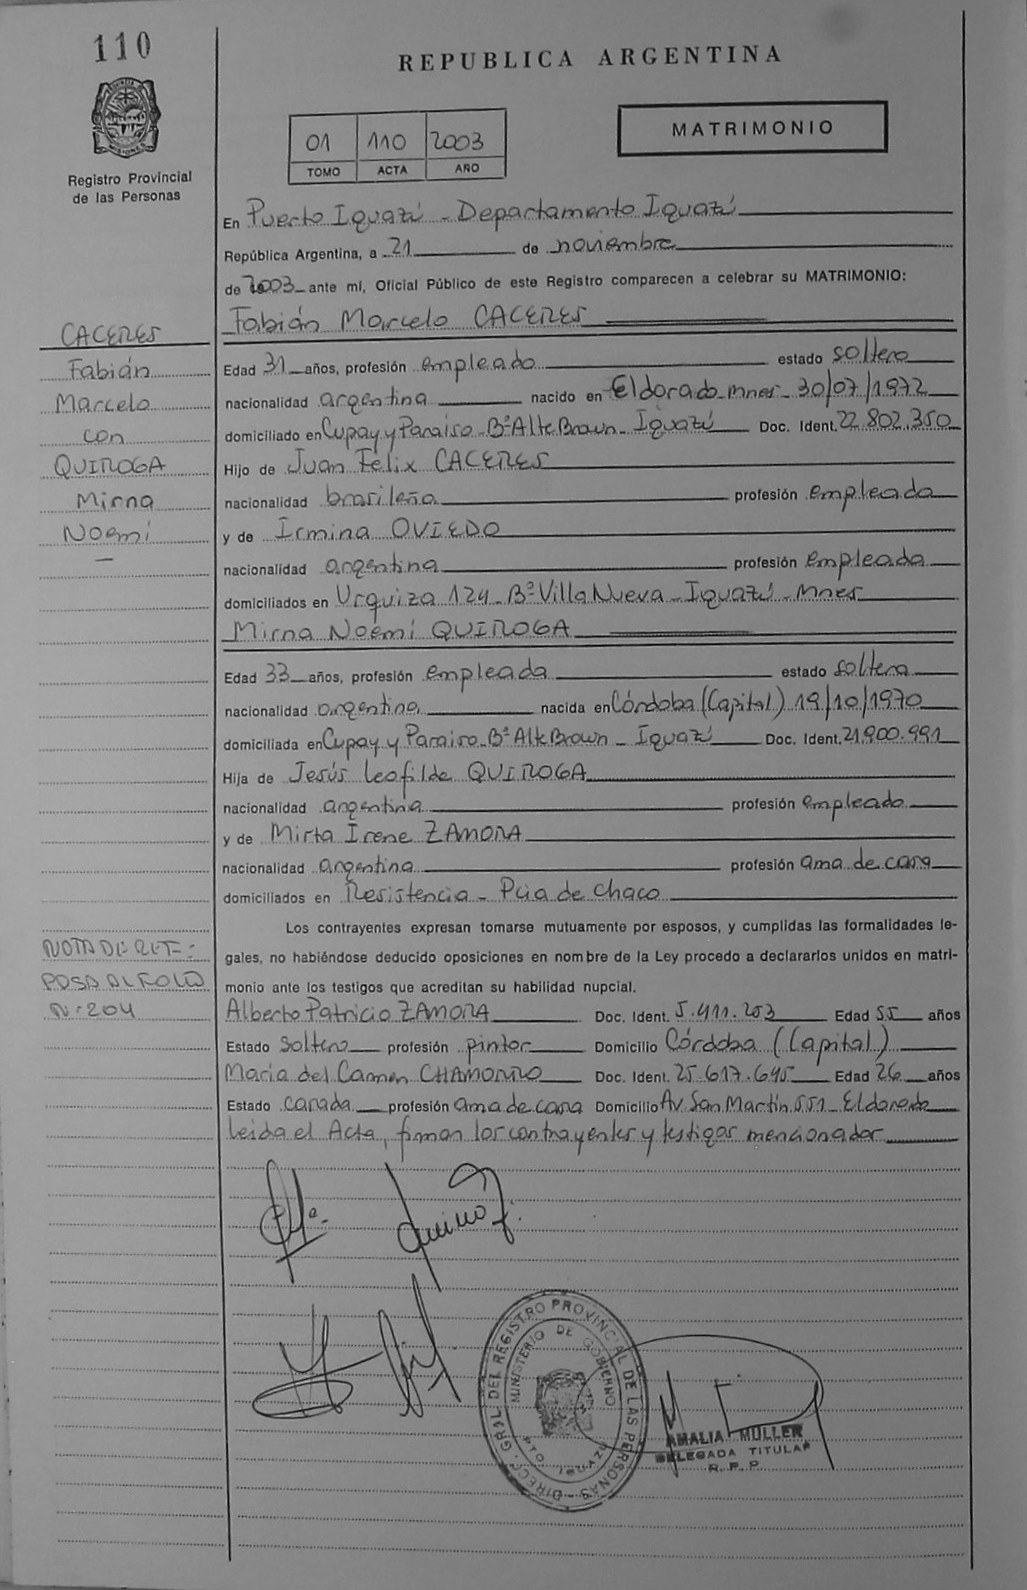 110
REPUBLICA ARGENTINA
Registro Provincial
de las Personas
01 110 2003
TOMO ACTA AÑO
MATRIMONIO
En Puerto Iguazú - Departamento Iguazú
República Argentina, a 21 de noviembre
de 2003 ante mí, Oficial Público de este Registro comparecen a celebrar su MATRIMONIO:
CACERES
Fabián
Marcelo
con
QUIROGA
Mirna
Noemí
Fabián Marcelo CACERES
Edad 31 años, profesión empleado estado soltero
nacionalidad argentina nacido en Eldorado-Mnes- 30/07/1972
domiciliado en Cupay y Paraiso-Bº Alte Brown - Iguazú Doc. Ident. 22.802.350
Hijo de Juan Felix CACERES
nacionalidad brasileña profesión empleado
y de Irmina OVIEDO
nacionalidad argentina profesión empleada
domiciliados en Urquiza 124-Bº Villa Nueva-Iguazú-Mnes
Mirna Noemí QUIROGA
Edad 33 años, profesión empleada estado soltera
nacionalidad argentina nacida en Córdoba (Capital) 19/10/1970
domiciliada en Cupay y Paraiso-Bº Alte Brown - Iguazú Doc. Ident. 21.900.991
Hija de Jesús Leofilde QUIROGA
nacionalidad argentina profesión empleado
y de Mirta Irene ZAMORA
nacionalidad argentina profesión ama de casa
domiciliados en Resistencia - Pcia de Chaco
Los contrayentes expresan tomarse mutuamente por esposos, y cumplidas las formalidades le-
gales, no habiéndose deducido oposiciones en nombre de la Ley procedo a declararlos unidos en matri-
monio ante los testigos que acreditan su habilidad nupcial.
NOTA DE REF:
PASA AL FOLIO
Nº 204
Alberto Patricio ZAMORA Doc. Ident. 5.411.253 Edad 55 años
Estado soltero profesión pintor Domicilio Córdoba (Capital)
María del Carmen CHAMORRO Doc. Ident. 25.617.695 Edad 26 años
Estado casada profesión ama de casa Domicilio Av San Martín 551-Eldorado
leida el Acta, firman los contrayentes y testigos mencionados
DIRECC. GRAL DEL REGISTRO PROVINCIAL DE LAS PERSONAS
MINISTERIO DE GOBIERNO
PTO. IGUAZU
AMALIA MULLER
DELEGADA TITULAR
R.P.P.